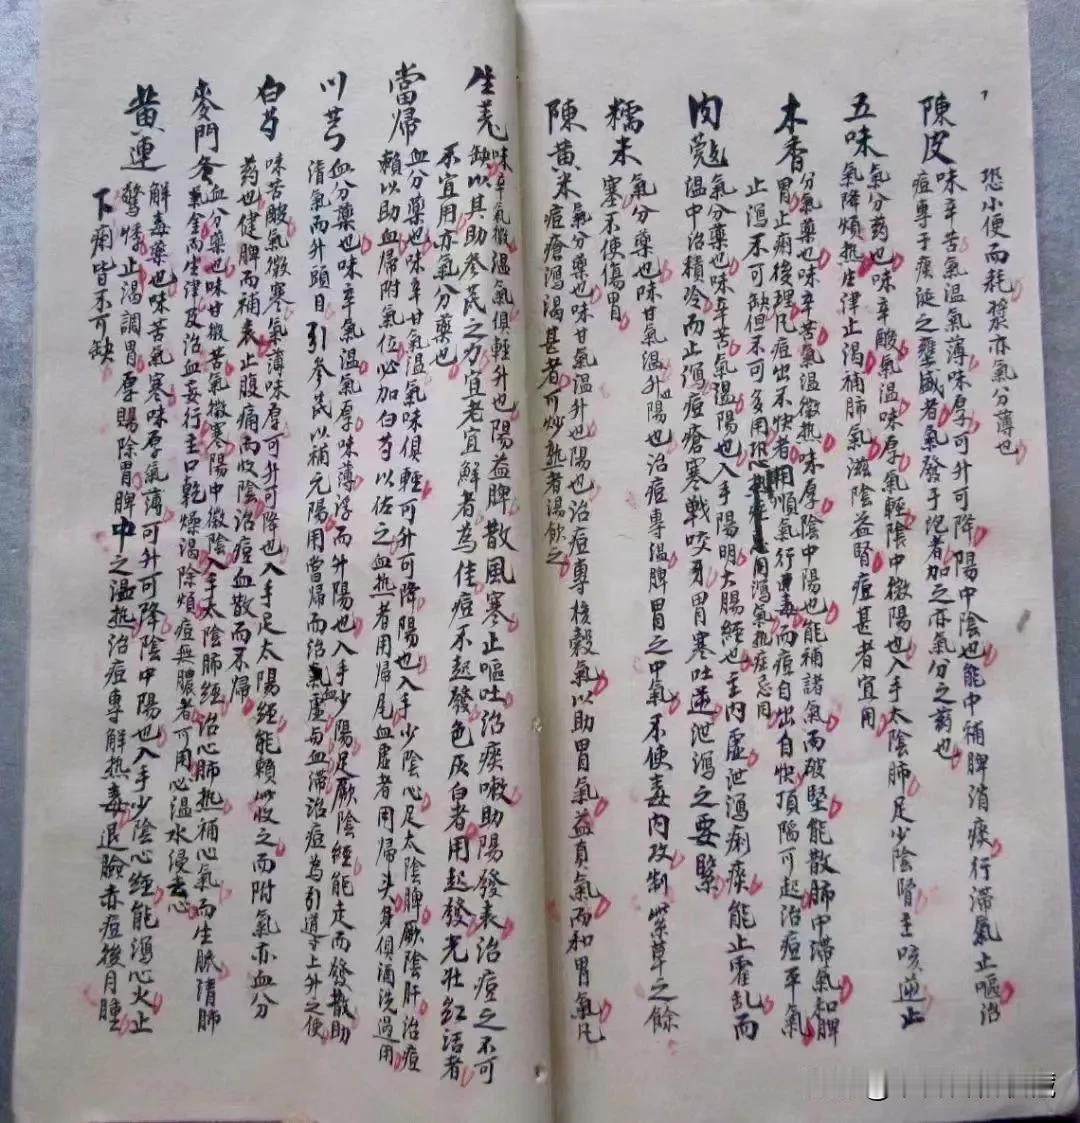 恐小便而耗漿亦氣分薄也
陳皮
味辛苦氣溫氣薄味厚可升可降陽中陰也能中補脾消痰行滯氣止嘔治
痘專于痰涎之壅盛者氣發于疙者加之亦氣分之药也
五味
氣分药也味辛酸氣溫味厚氣輕陰中微陽也入手太陰肺足少陰腎主咳逆止
氣降煩热生律止渴補肺氣滋陰益腎痘甚者宜用
木香
分氣藥也味辛苦氣溫微热味厚陰中陽也能補諸氣而破堅能散肺中滯氣和脾
胃止痢後理凡痘出不快者用順氣行毒而痘自出自快頂陥可起治痘平氣
止瀉不可缺但不可多用恐用瀉氣热症忌用
肉蔻
氣分藥也味辛苦氣溫陽也入手陽明大腸經也主内虛泄瀉痢痰能止霍乱而
溫中治積冷而止瀉痘瘡寒戰咬牙胃寒吐逆泄瀉之要緊
糯米
氣分藥也味甘氣溫升陽也治痘專溫脾胃之中氣不使毒内攻制紫草之餘
寒不使傷胃
陳黄米
氣分藥也味甘氣溫升也陽也治痘專榖氣以助胃氣益真氣而和胃氣凡
痘瘡瀉渴甚者可炒熟者湯飲之
生羌
味辛氣微溫氣俱輕升也陽益脾散風寒止嘔吐治痰嗽助陽發表治痘之不可
缺以其助參芪之力宜老宜鮮者為佳痘不起發色灰白者用起發光壮红活者
不宜用亦氣分藥也
當帰
血分藥也味辛甘氣溫氣味俱輕可升可降陽也入手少陰心足太陰脾厥陰肝治痘
賴以助血帰附氣位必加白芍以佐之血热者用帰尾血虛者用帰头身俱酒洗過用
川芎
血分藥也味辛氣溫氣厚味薄浮而升陽也入手少陽足厥陰經能走而發散助
清氣而升頭目引參芪以補元陽用當帰而治氣虛与血滯治痘為引道下上升之使
白芍
味苦酸氣微寒氣薄味厚可升可降也入手足太陽經能賴以收之而附氣亦血分
药也健脾而補表止腹痛而收陰治痘血散而不帰
麥門冬
血分藥也味甘微苦氣微寒陽中微陰入手太陰肺經治心肺热補心氣而生脉清肺
氣金而生律及治血妄行主口乾燥渴除煩痘無膿者可用心溫水浸去心
黄連
解毒藥也味苦氣寒味厚氣薄可升可降陰中陽也入手少陰心經能瀉心火止
驚悸止渴調胃厚腸除胃脾中之溫热治痘專解热毒退臉赤痘後月腫
下痢皆不可缺